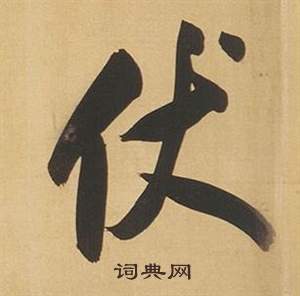 伏
词典网